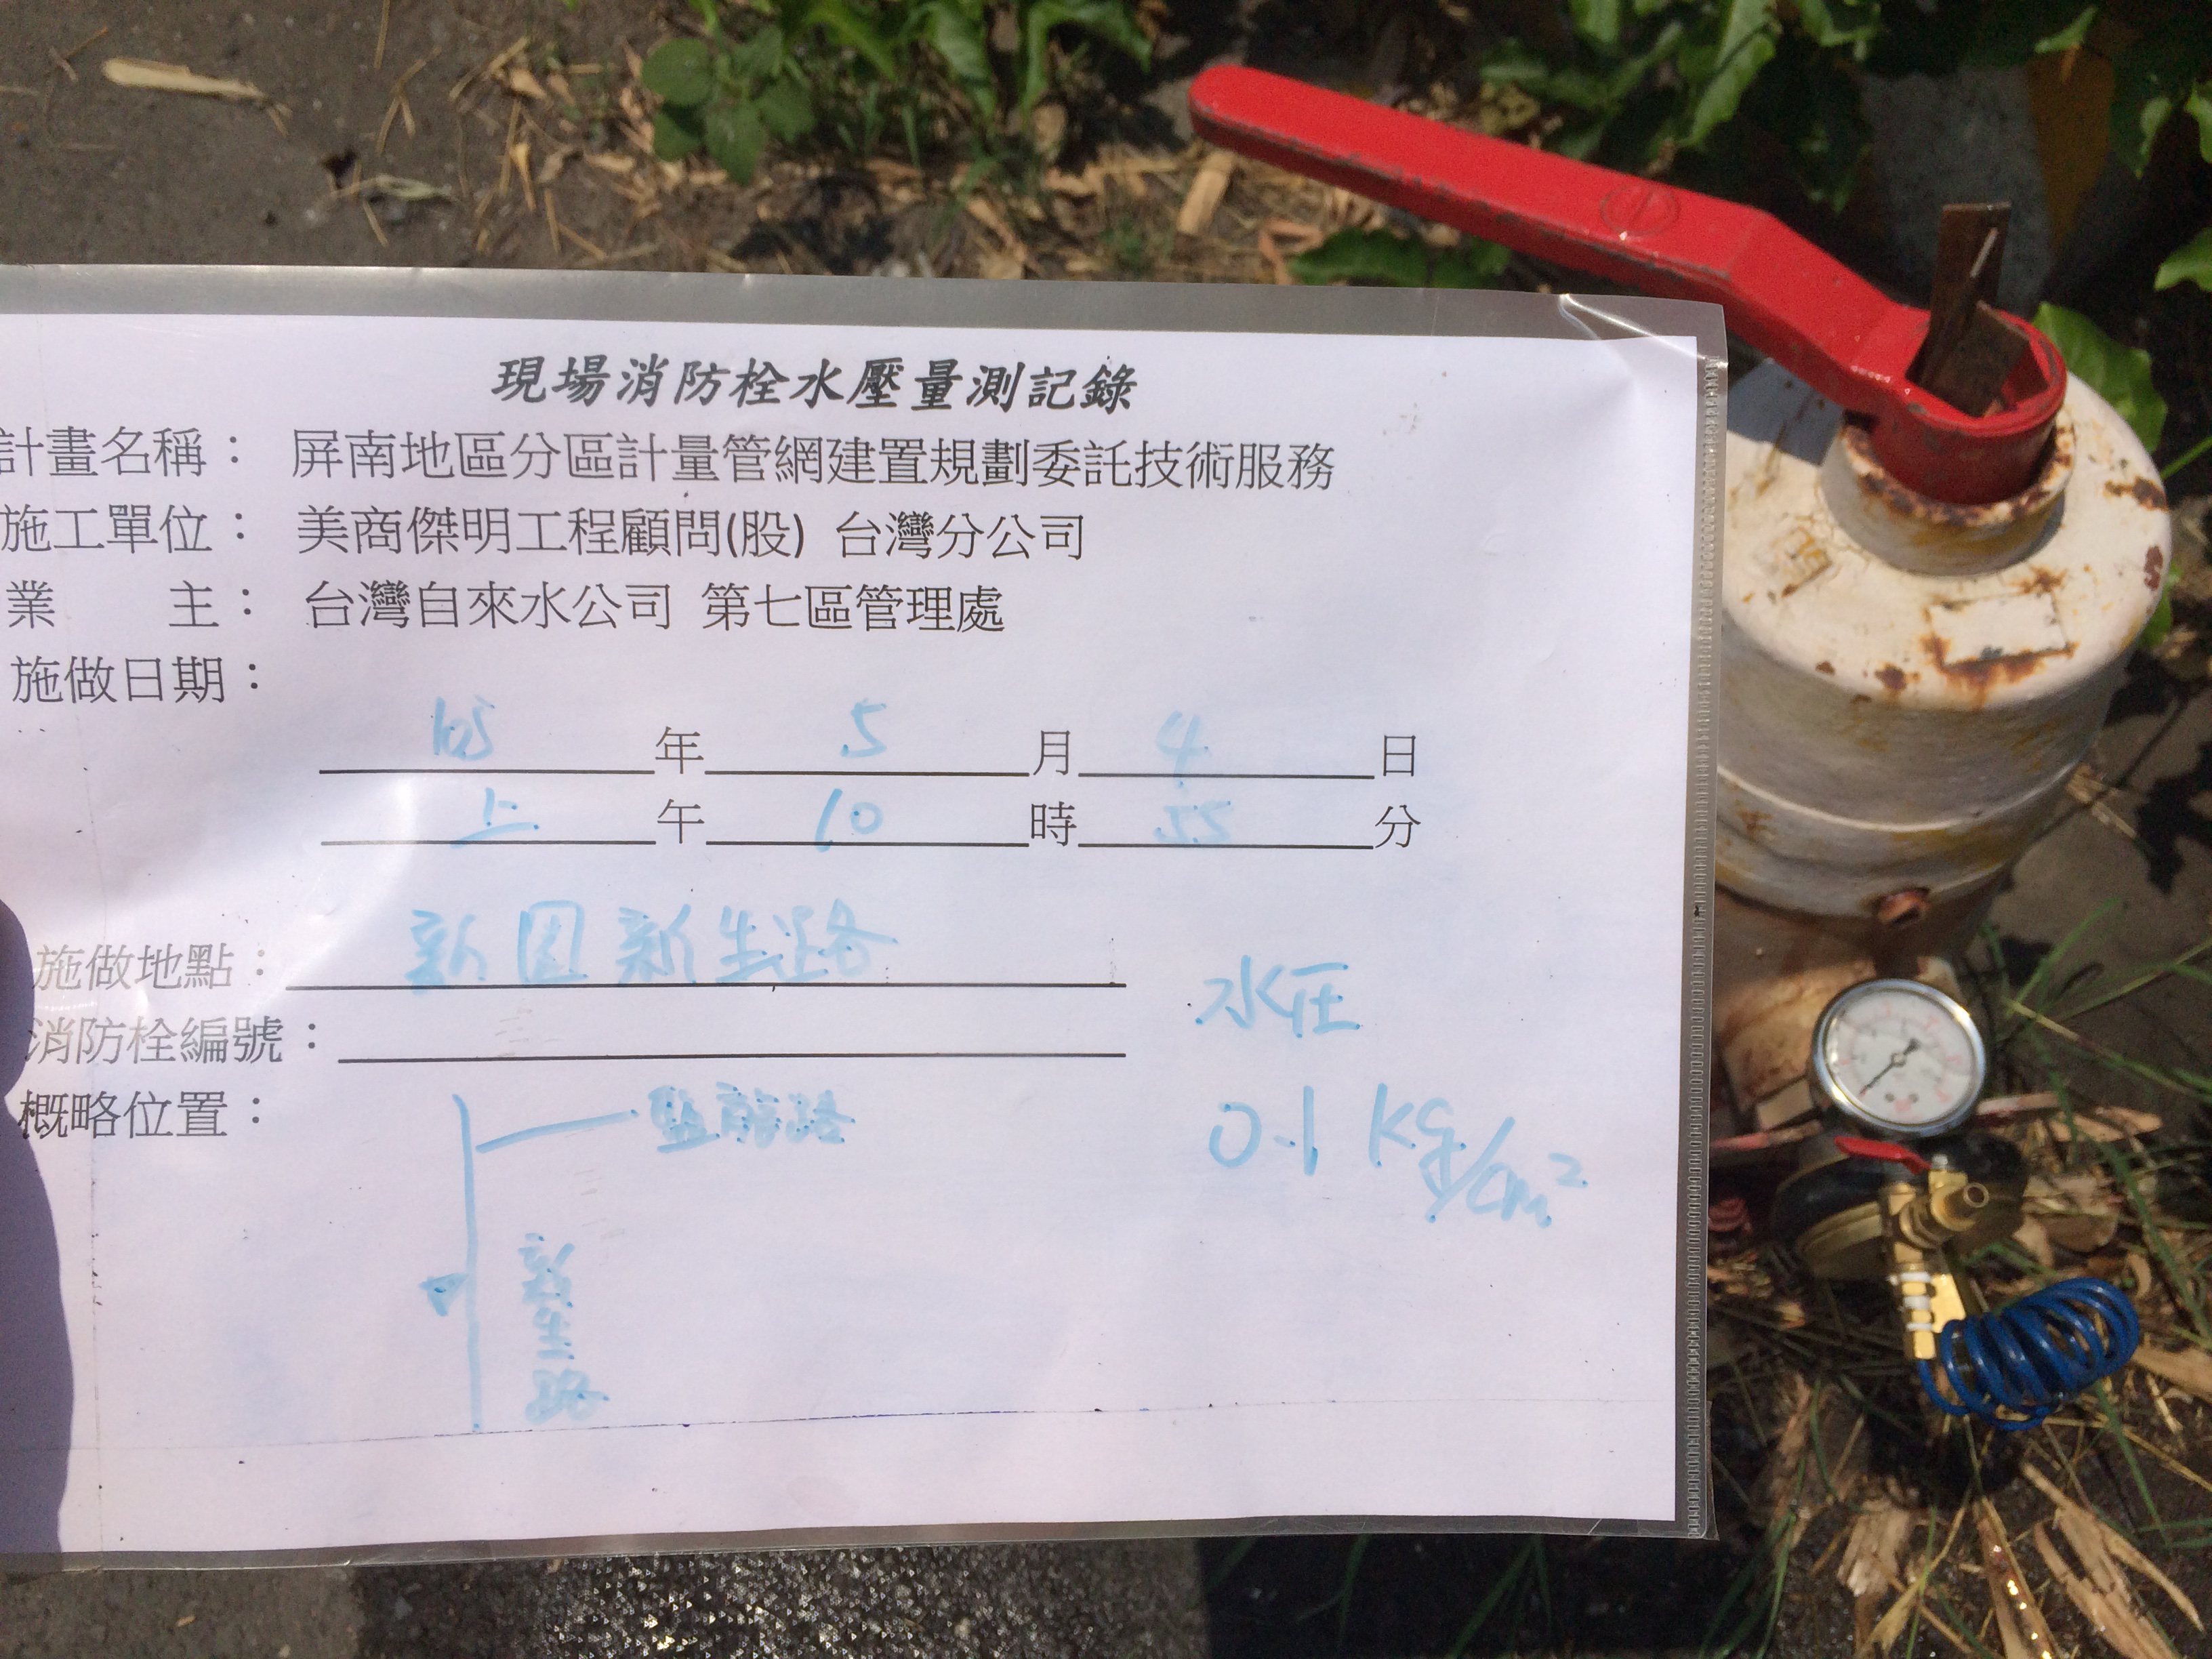 現場消防栓水壓量測記錄
計畫名稱： 屏南地區分區計量管網建置規劃委託技術服務
施工單位： 美商傑明工程顧問(股) 台灣分公司
業 主： 台灣自來水公司 第七區管理處
施做日期：
105 年 5 月 4 日
上 午 10 時 55 分
施做地點： 新園新生路
水圧
消防栓編號：
概略位置：
0.1 kg/cm²
新生路